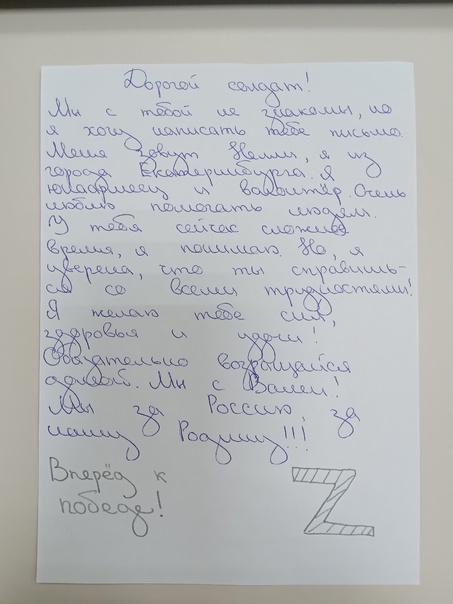 Дорогой солдат!
Мы с тобой не знакомы, но
я хочу написать тебе письмо.
Меня зовут Нелли, я из
города Екатеринбурга. Я
юнармеец и волонтёр. Очень
люблю помогать людям.
У тебя сейчас сложное
время, я понимаю. Но, я
уверена, что ты справишь-
ся со всеми трудностями!
Я желаю тебе сил,
здоровья и удачи!
Обязательно возвращайся
домой. Мы с Вами!
Мы за Россию, за
нашу Родину!!!
Вперёд к
победе!
Z